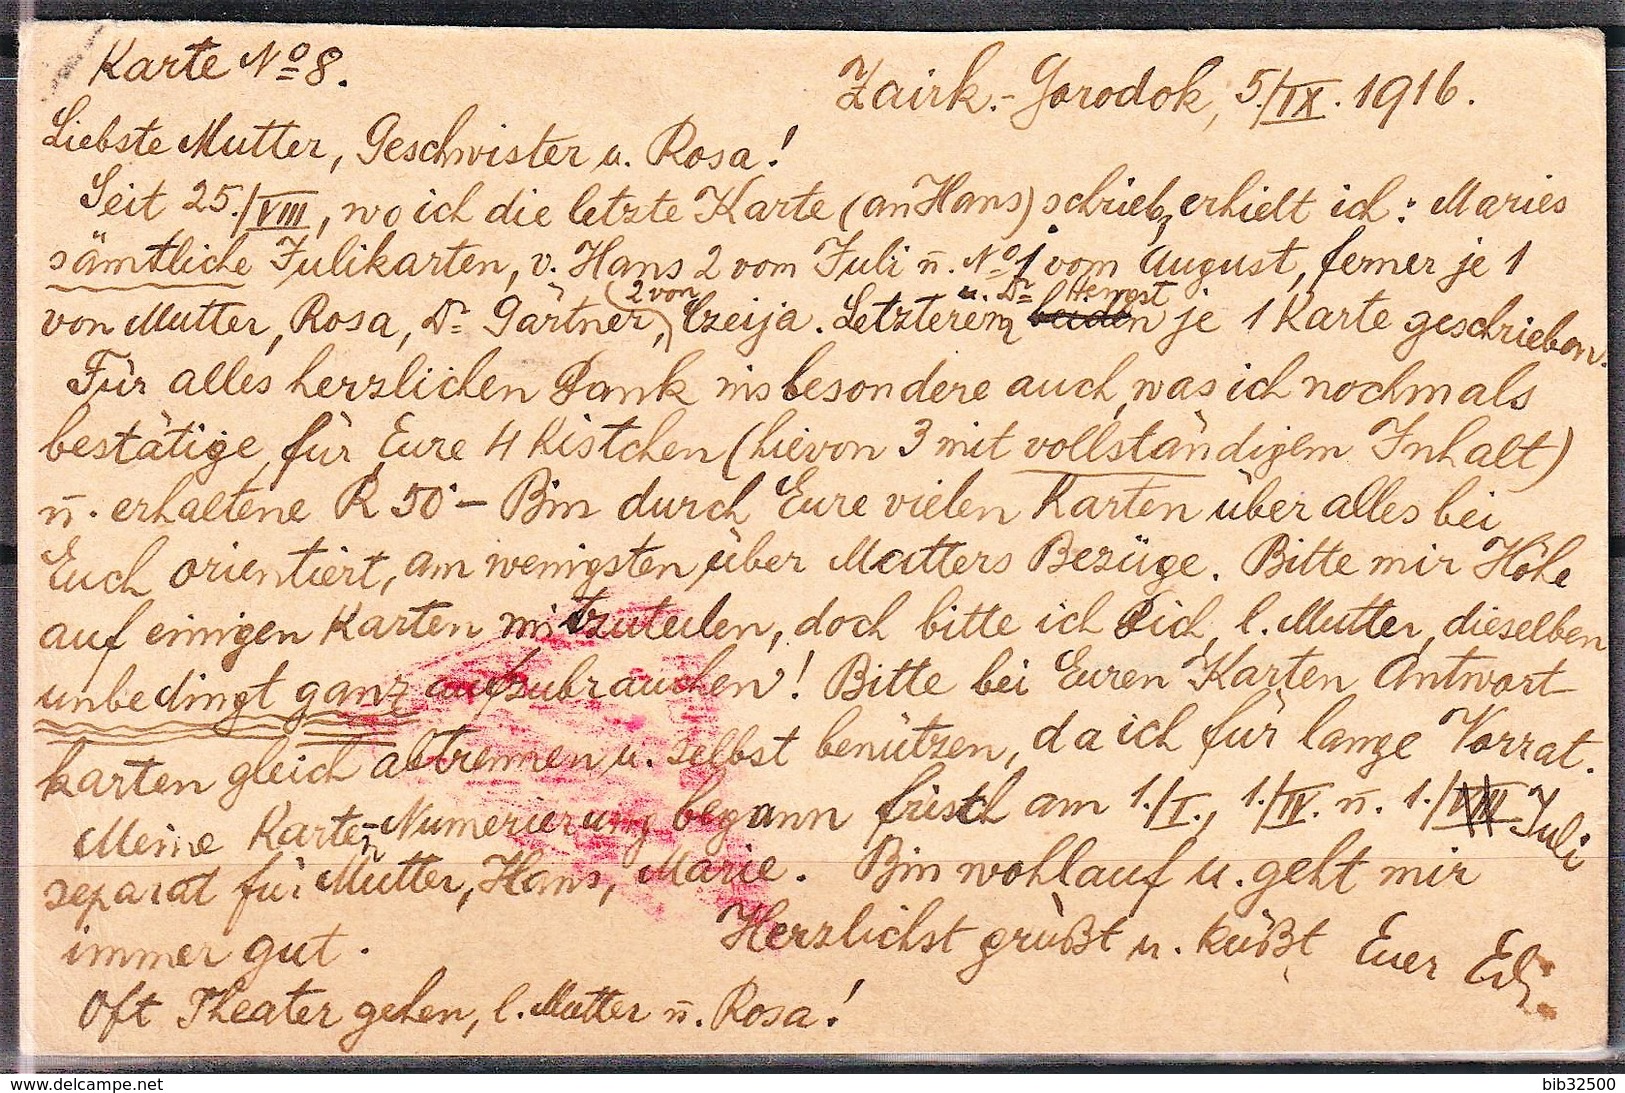 Karte No 8.
Zairk.-Gorodok, 5./IX. 1916.
Liebste Mutter, Geschwister u. Rosa!
Seit 25./VIII, wo ich die letzte Karte (an Hans) schrieb, erhielt ich: Maries
sämtliche Julikarten, v. Hans 2 vom Juli u. No 1 vom August, ferner je 1
von Mutter, Rosa, Dr Gärtner, (2 von) Czeija. Letzterem u. Dr Hengst je 1 Karte geschrieben.
Für alles herzlichen Dank insbesondere auch, was ich nochmals
bestätige, für Eure 4 Kistchen (hievon 3 mit vollständigem Inhalt)
u. erhaltene R 50·— Bin durch Eure vielen Karten über alles bei
Euch orientiert, am wenigsten über Mutters Bezüge. Bitte mir Höhe
auf einigen Karten mitzuteilen, doch bitte ich Dich, l. Mutter, dieselben
unbedingt ganz aufzubrauchen! Bitte bei Euren Karten Antwort-
karten gleich abtrennen u. selbst benützen, da ich für lange Vorrat.
Meine Karten-Numerierung begann frisch am 1./I., 1./IV. u. 1./VII Juli
separat für Mutter, Hans, Marie. Bin wohlauf u. geht mir
immer gut. Herzlichst grüßt u. küßt Euer Ed.
Oft Theater gehen, l. Mutter u. Rosa!
delcampe.net
bib32500